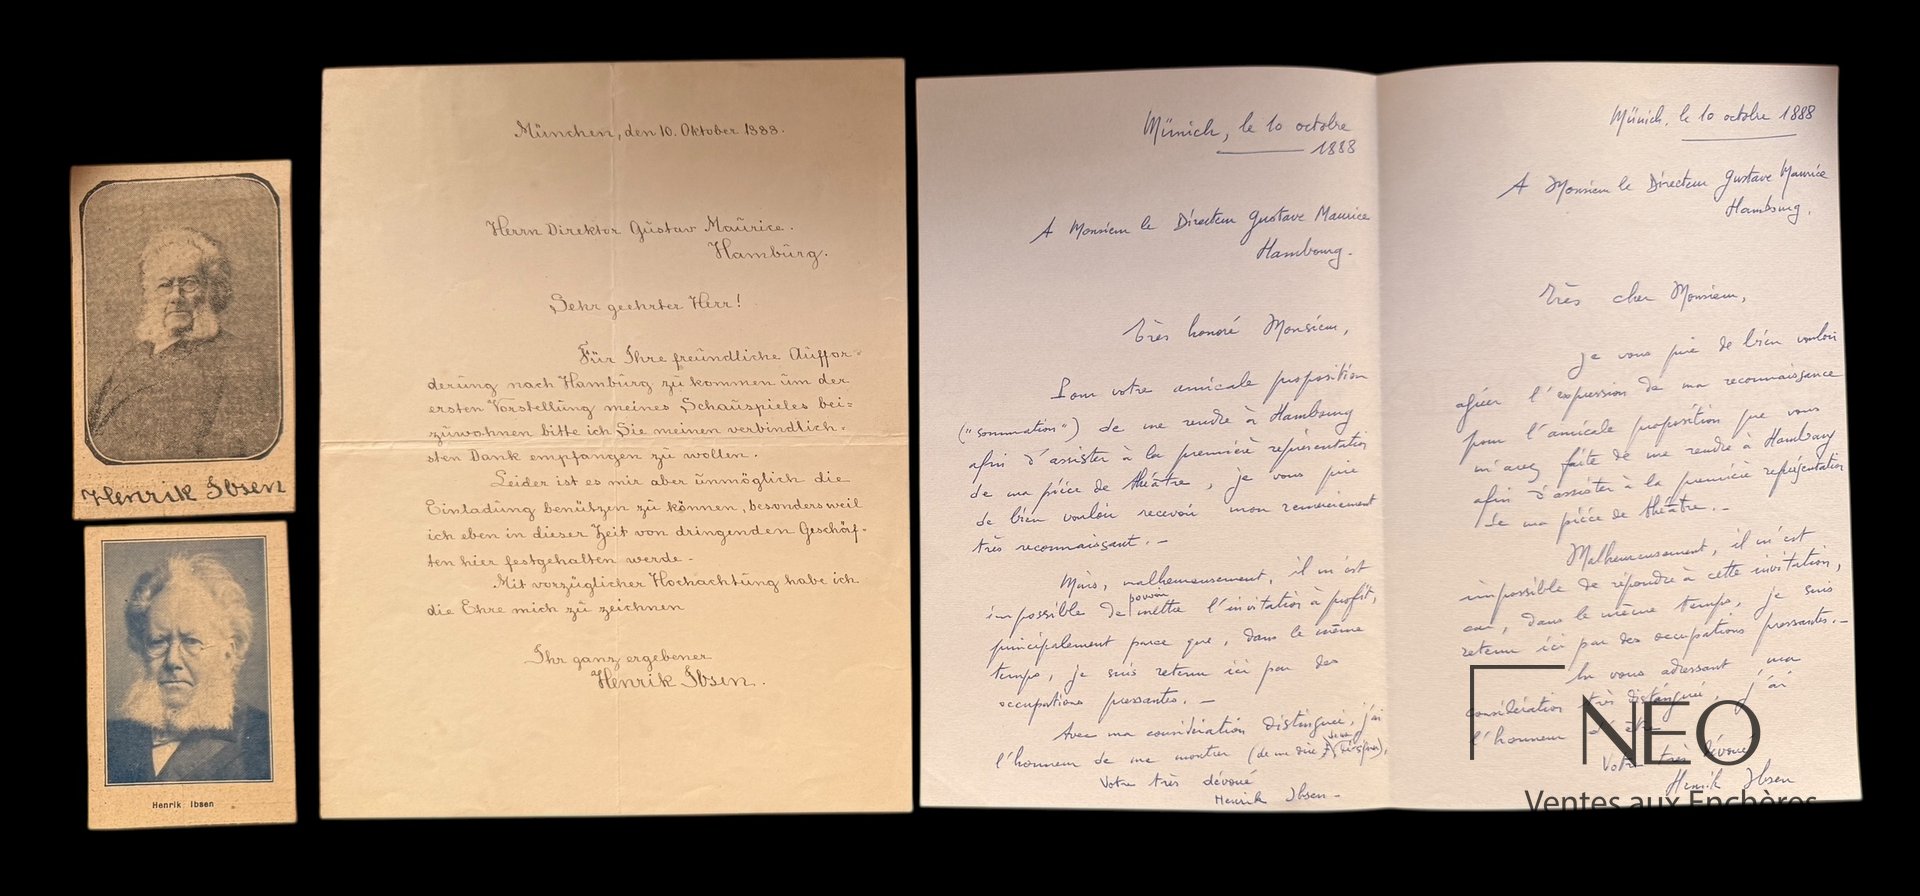 Henrik Ibsen
Henrik Ibsen
München, den 10. Oktober 1888.
Herrn Direktor Gustav Maurice.
Hamburg.
Sehr geehrter Herr!
Für Ihre freundliche Auffor-
derung nach Hamburg zu kommen um der
ersten Vorstellung meines Schauspieles bei-
zuwohnen bitte ich Sie meinen verbindlich-
sten Dank empfangen zu wollen.
Leider ist es mir aber unmöglich die
Einladung benützen zu können, besonders weil
ich eben in dieser Zeit von dringenden Geschäf-
ten hier festgehalten werde.
Mit vorzüglicher Hochachtung habe ich
die Ehre mich zu zeichnen
Ihr ganz ergebener
Henrik Ibsen.
Münich, le 10 octobre
1888
A Monsieur le Directeur Gustave Maurice
Hambourg.
Très honoré Monsieur,
Pour votre amicale proposition
("sommation") de me rendre à Hambourg
afin d'assister à la première représentation
de ma pièce de théâtre, je vous prie
de bien vouloir recevoir mon remerciement
très reconnaissant.-
Mais, malheureusement, il m'est
impossible de pouvoir mettre l'invitation à profit,
principalement parce que, dans le même
temps, je suis retenu ici par des
occupations pressantes.-
Avec ma considération distinguée, j'ai
l'honneur de me montrer (de me dire
Votre très dévoué
Henrik Ibsen-
Münich, le 10 octobre 1888
A Monsieur le Directeur Gustave Maurice
Hambourg.
Très cher Monsieur,
Je vous prie de bien vouloir
agréer l'expression de ma reconnaissance
pour l'amicale proposition que vous
m'avez faite de me rendre à Hambourg
afin d'assister à la première représentation
de ma pièce de théâtre.-
Malheureusement, il m'est
impossible de répondre à cette invitation,
car, dans le même temps, je suis
retenu ici par des occupations pressantes.-
En vous adressant ma
considération très distinguée, j'ai
l'honneur d'être
Votre très dévoué
Henrik Ibsen
NEO
Ventes aux Enchères